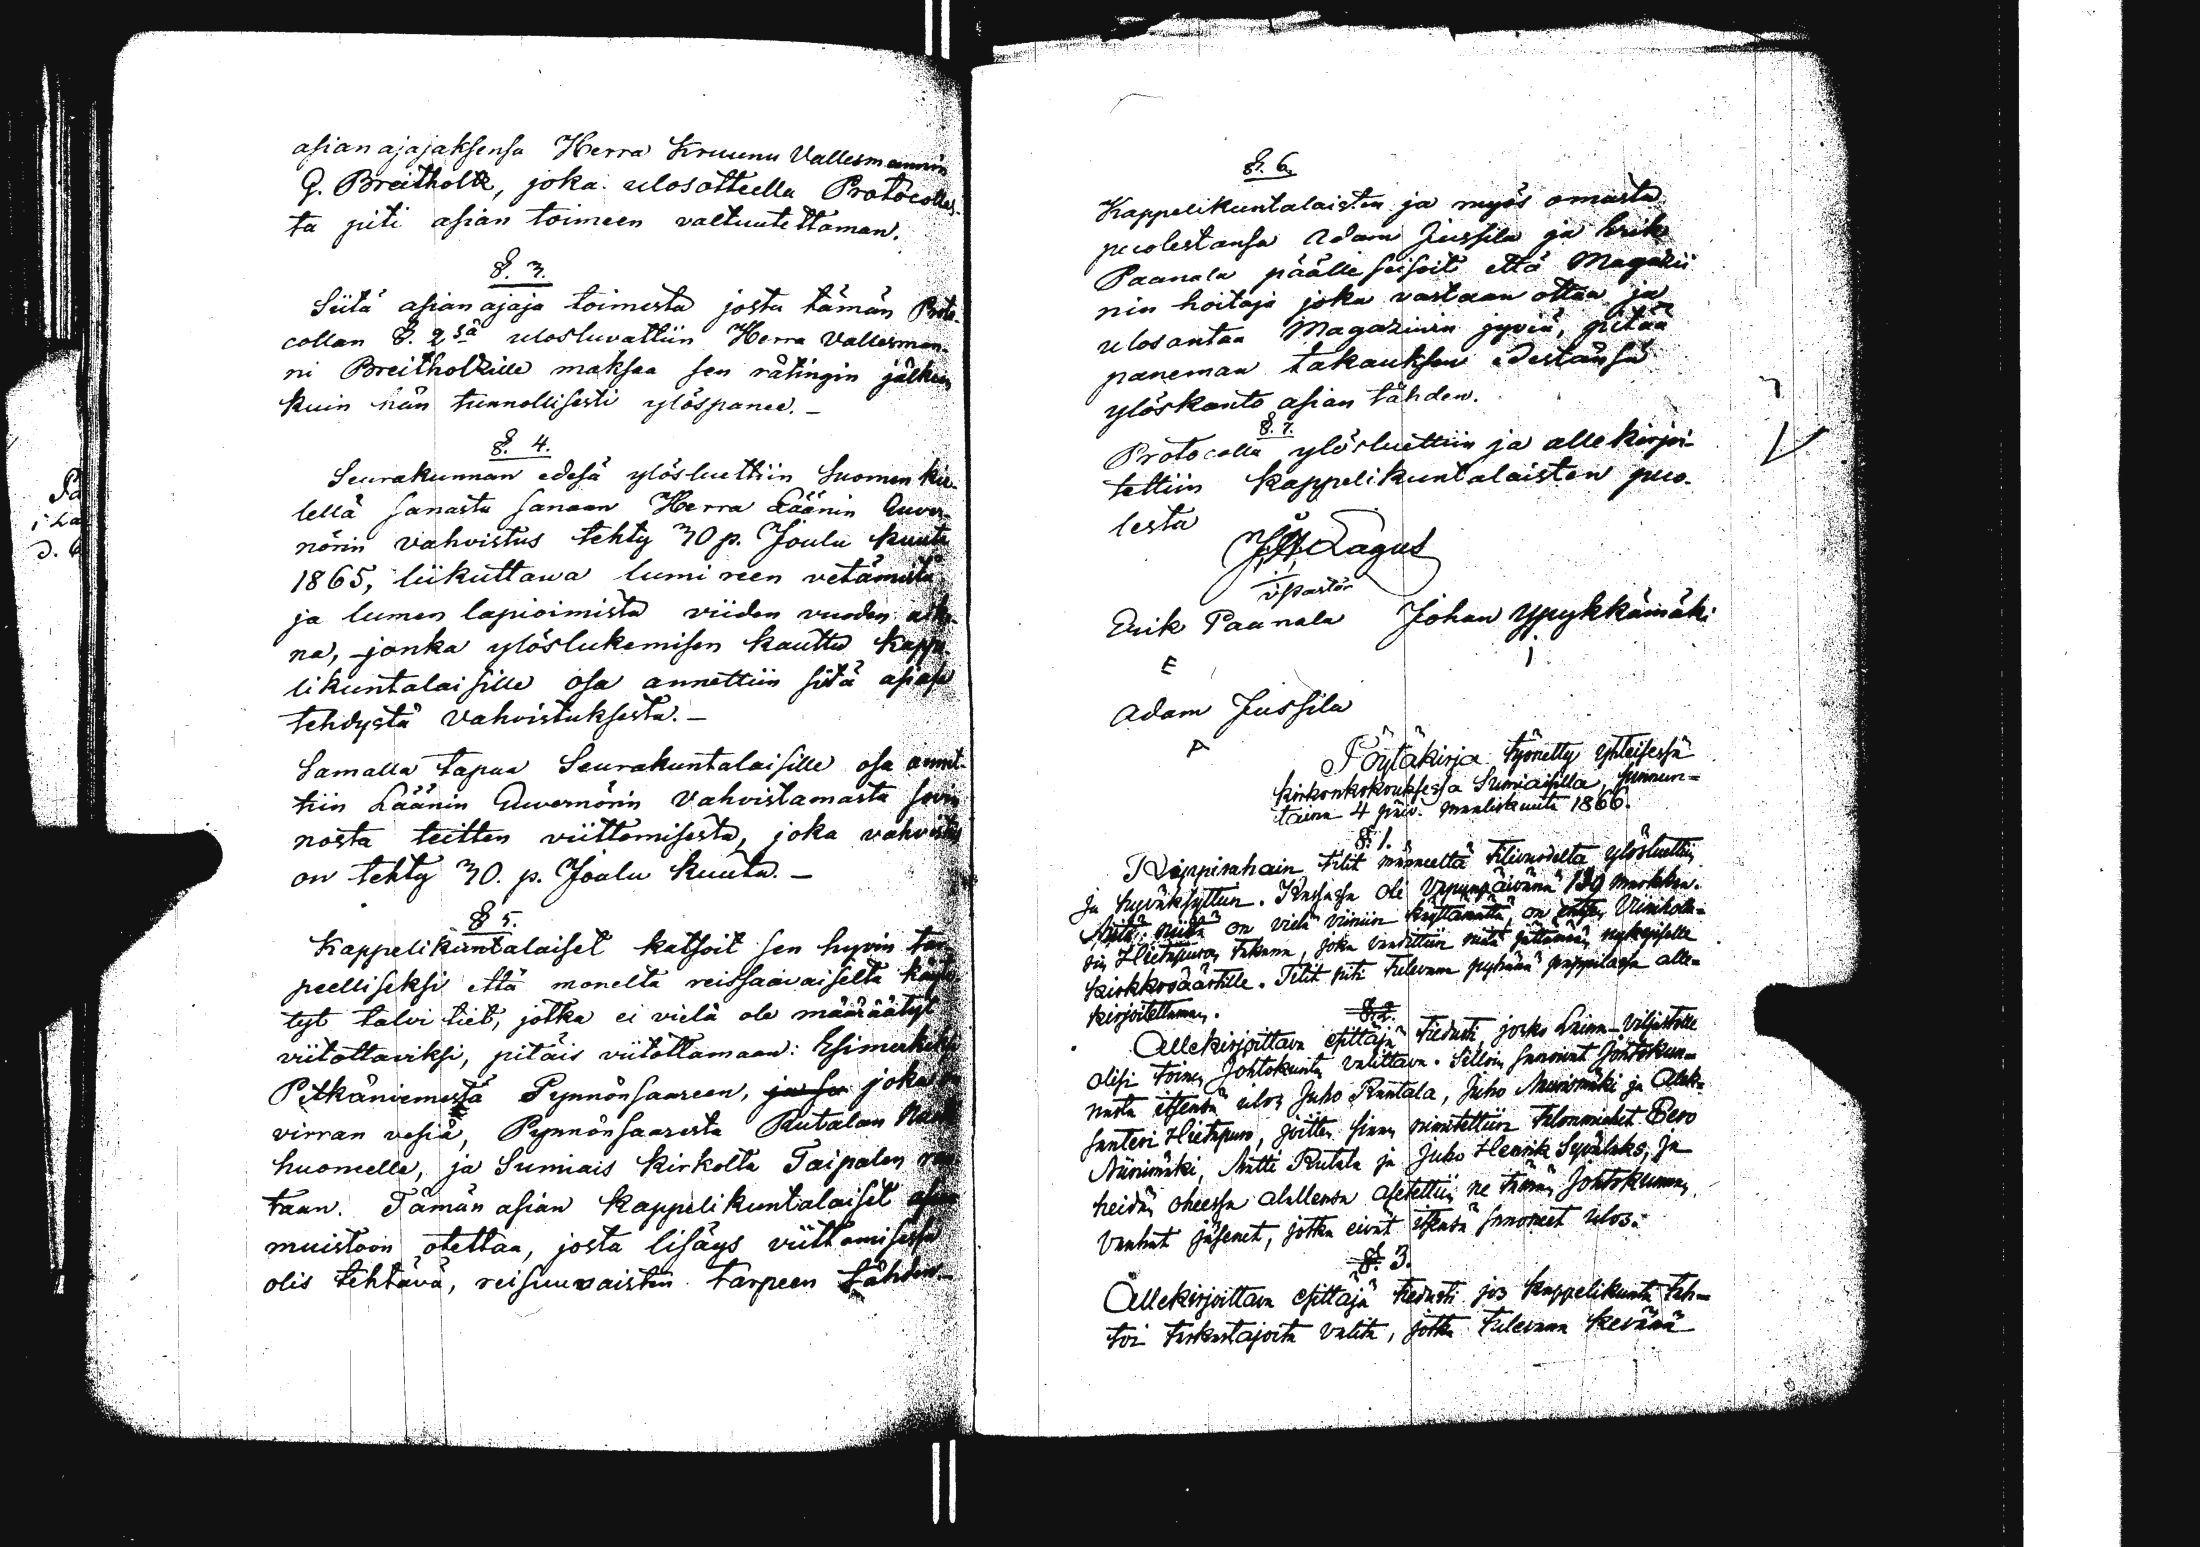 asianajajaksensa Herra Kruunu Vallesmannin
G. Breitholtz, joka ulosotteella Protocollas-
ta piti asian toimeen valtuutettaman.
§. 3.
Siitä asianajaja toimesta josta tämän Proto-
collan §. 2 sä ulosluvattiin Herra Vallesman-
ni Breitholtzille maksaa sen rätingin jälkeen
kuin hän tunnollisesti ylöspanee. -
§. 4.
Seurakunnan edesä ylösluettiin Suomen kie-
lellä sanasta sanaan Herra Läänin Guver-
nörin vahvistus tehty 30 p. Joulu kuuta
1865, liikuttawa lumi reen vetämistä
ja lumen lapioimista viiden vuoden aika-
na, jonka ylöslukemisen kautta kappe-
likuntalaisille osa annettiin siitä asiasa
tehdystä vahvistuksesta. -
Samalla tapaa Seurakuntalaisille osa annet-
tiin Läänin Guvernörin Vahvistamasta sovin
nosta teitten viittomisesta, joka vahvistus
on tehty 30. p. Joulu kuuta. -
§ 5.
Kappelikuntalaiset katsoit sen hyvin tar-
peelliseksi että monelta reissaavaiselta käyte-
tyt talvi tiet, jotka ei vielä ole määräätyt
viitottaviksi, pitäis viitottamaan: Esimerkiksi
Pitkäniemestä Pynnönsaareen, ja sa joka on
virran vesiä, Pynnönsaaresta Rutalan
huoneelle, ja Sumiais Kirkolta Taipalen ran
taan. Tämän asian kappelikuntalaiset
muistoon otettaa, josta lisäys viittomisessa
olis tehtävä, reisuuvaisten tarpeen tähden. -
§. 6.
Kappelikuntalaisten ja myös omasta
puolestansa Adam Jussila ja Erik
Paanala päälle seisoit että Magazii
nin hoitaja joka vastaan ottaa ja
ulosantaa Magazinin jyviä, pitää
paneman takauksen edestänsä
ylöskanto asian tähden.
§. 7.
Protocolla ylösluettiin ja allekirjoi-
tettiin Kappelikuntalaisten puo-
lesta
Lagus
v. pastor
Erik Paanala Johan Ypykkämäki
E
Adam Jussila
A
Pöytäkirja työnetty yhteisessä
kirkonkokouksessa Sumiaisilla, sunnun-
taina 4 päiv. maaliskuuta 1866.
§. 1.
tilit männeeltä tilivuodelta ylösluettiin
ja hyväksyttiin. Kassassa oli Vapunpäivänä 139 markkaa.
on vielä viiniin käyttämättä, on
Hietapuron takana, joka vaadittiin niitä jättämään nykyiselle
kirkkoväärtille. Tilit piti tulevana pyhänä pappilassa alle-
kirjoitettaman.
§. 2.
Allekirjoittava esittäjä tiedusti, josko Laina-Viljastolle
olisi toinen Johtokunta valittava. Silloin sanoivat Johtokun-
nasta itsensä ulos Juho Rantala, Juho Niinimäki ja Alek-
santeri Hietapuro, joitten siaan nimitettiin talonmiehet Eero
Niinimäki, Matti Rutala ja Juho Henrik Syvälaks, ja
heidän oheessa alallensa asetettiin ne tämän Johtokunnan
vanhat jäsenet, jotka eivät itseänsä sanoneet ulos.
§. 3.
Allekirjoittava esittäjä tiedusti jos kappelikunta tah-
toi tarkastajoita valita, jotka tulevana keväänä